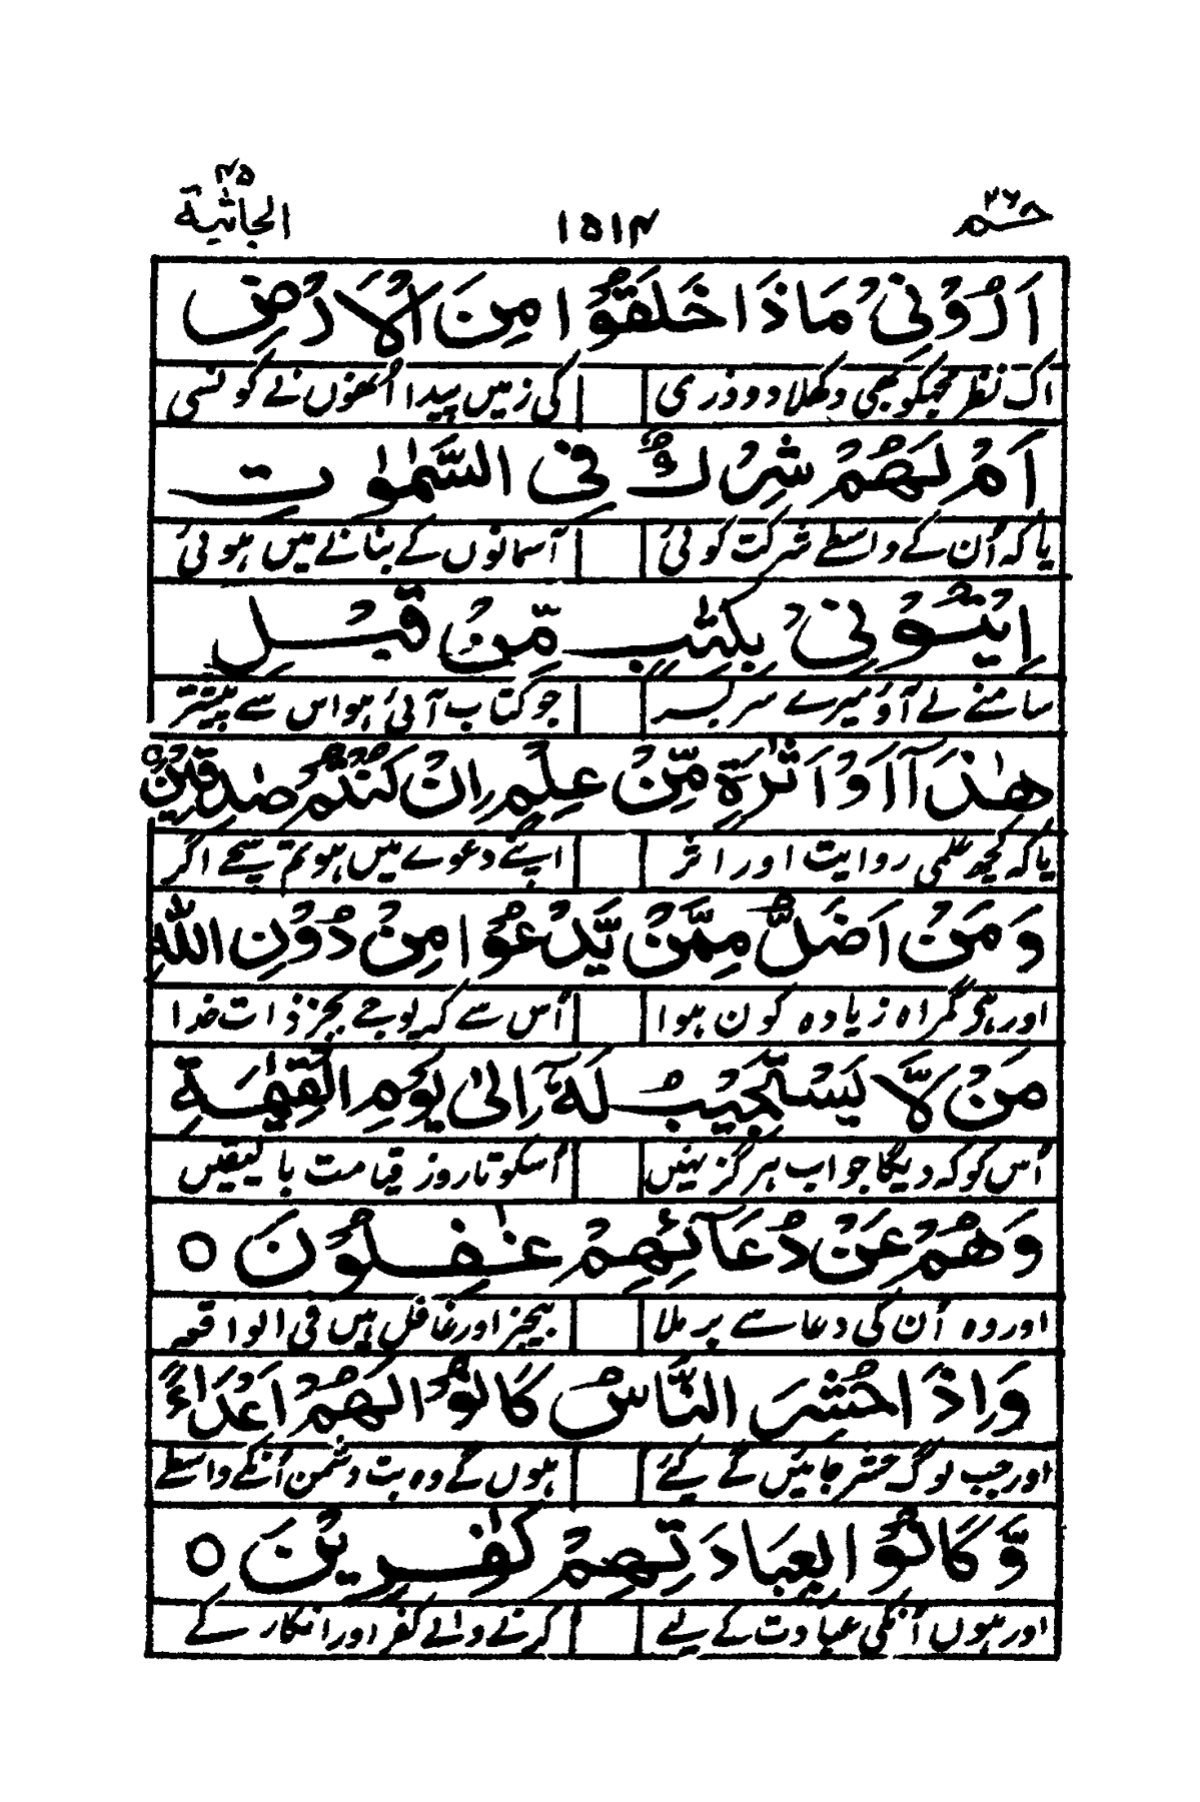 حٰمٓ ۲۶ ۱۵۱۴ الجاثية ۴۵
اَرُوْنِیْ مَاذَا خَلَقُوْا مِنَ الْاَرْضِ
اک نظر مجھکو بھی دکھلا دو ذری کی زمیں پیدا اُنھوں نے کونسی
اَمْ لَهُمْ شِرْكٌ فِی السَّمٰوٰتِ
یا کہ اُن کے واسطے شرکت کوئی آسمانوں کے بنانے میں ہوئی
اِیْتُوْنِیْ بِكِتٰبٍ مِّنْ قَبْلِ
سامنے لے آؤ میرے سر بسر جو کتاب آئی ہو اس سے پیشتر
هٰذَآ اَوْ اَثٰرَةٍ مِّنْ عِلْمٍ اِنْ كُنْتُمْ صٰدِقِیْنَ ۝
یا کہ کچھ علمی روایت اور اثر اپنے دعوے میں ہو تم سچے اگر
وَمَنْ اَضَلُّ مِمَّنْ یَّدْعُوْا مِنْ دُوْنِ اللّٰهِ
اور ہی گمراہ زیادہ کون ہوا اُس سے کہ پوجے بجز ذات خدا
مَنْ لَّا یَسْتَجِیْبُ لَهٗۤ اِلٰی یَوْمِ الْقِیٰمَةِ
اُس کو کہ دیگا جواب ہرگز نہیں اُسکو تا روز قیامت بالیقیں
وَهُمْ عَنْ دُعَآئِهِمْ غٰفِلُوْنَ ۝
اور وہ اُن کی دعا سے بر ملا بیخبز اور غافل ہیں فی الواقعہ
وَاِذَا حُشِرَ النَّاسُ كَانُوْا لَهُمْ اَعْدَآءً
اور جب لوگ حشر جائیں گے کئے ہوں گے وہ بت دشمن اُنکے واسطے
وَّكَانُوْا بِعِبَادَتِهِمْ كٰفِرِیْنَ ۝
اور ہوں اُنکی عبادت کے لیے کرنے والے کفر اور انکار کے